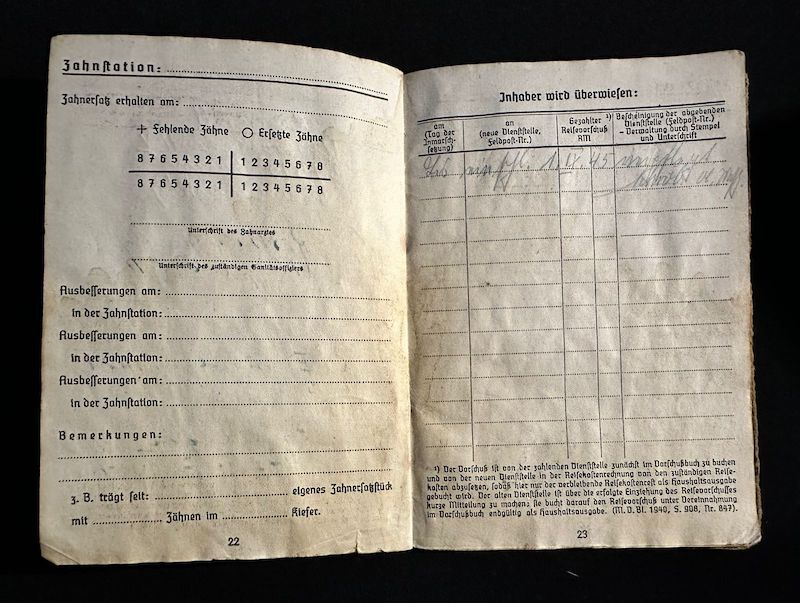 Zahnstation:
Zahnersatz erhalten am:
+ Fehlende Zähne ○ Ersetzte Zähne
8 7 6 5 4 3 2 1 | 1 2 3 4 5 6 7 8
8 7 6 5 4 3 2 1 | 1 2 3 4 5 6 7 8
Unterschrift des Zahnarztes
Unterschrift des zuständigen Sanitätsoffiziers
Ausbesserungen am:
in der Zahnstation:
Ausbesserungen am:
in der Zahnstation:
Ausbesserungen am:
in der Zahnstation:
Bemerkungen:
z. B. trägt seit: eigenes Zahnersatzstück
mit Zähnen im Kiefer.
22
Inhaber wird überwiesen:
am
(Tag der
Inmarsch-
setzung)
an
(neue Dienststelle,
Feldpost-Nr.)
Gezahlter ¹)
Reisevorschuß
RM
Bescheinigung der abgebenden
Dienststelle (Feldpost-Nr.)
- Verwaltung durch Stempel
und Unterschrift
45
¹) Der Vorschuß ist von der zahlenden Dienststelle zunächst im Vorschußbuch zu buchen
und von der neuen Dienststelle in der Reisekostenrechnung von den zuständigen Reise-
kosten abzusetzen, sodaß hier nur der verbleibende Reisekostenrest als Haushaltsausgabe
gebucht wird. Der alten Dienststelle ist über die erfolgte Einziehung des Reisevorschusses
kurze Mitteilung zu machen; sie bucht darauf den Reisevorschuß unter Vereinnahmung
im Vorschußbuch endgültig als Haushaltsausgabe. (M. D. Bl. 1940, S. 908, Nr. 847).
23